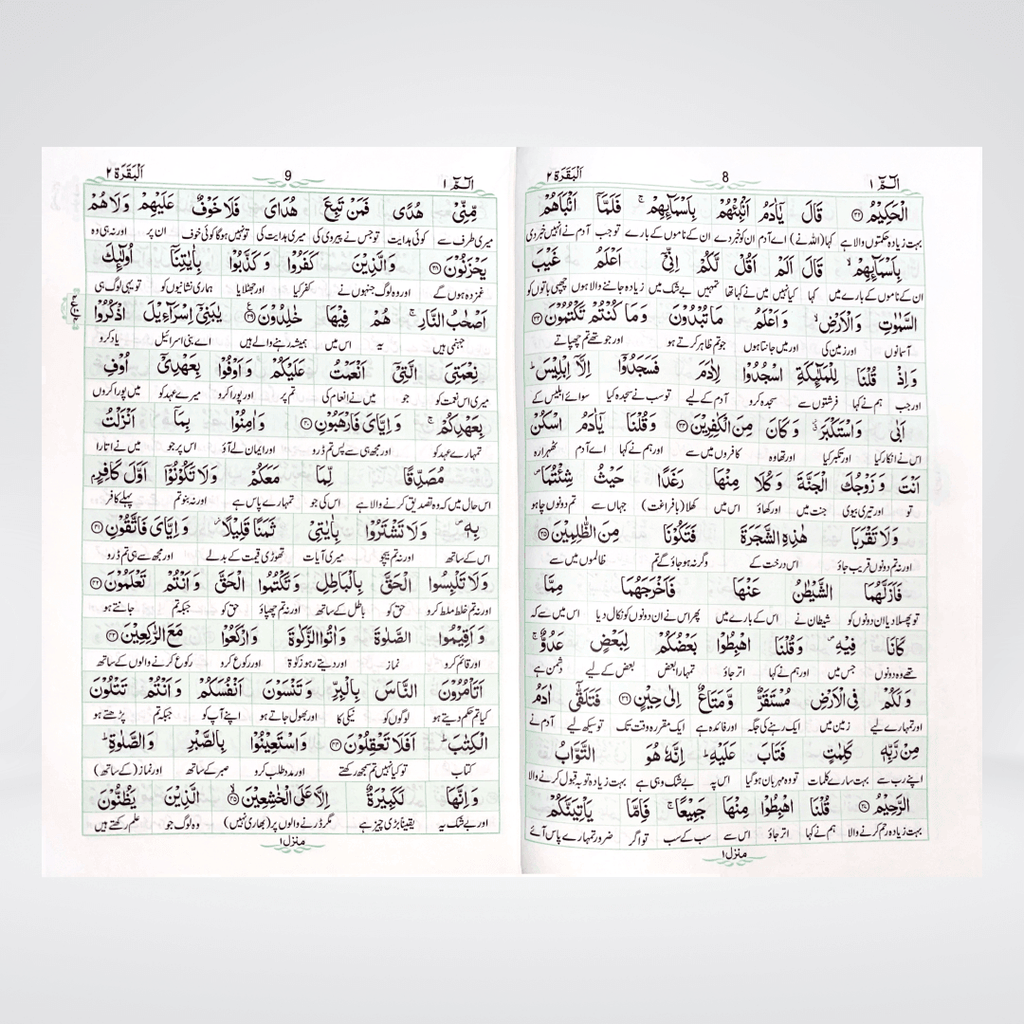 الٓمّٓ ١ 8 اَلْبَقَرَة ٢
الْحَكِيْمُ ﴿٣٢﴾ قَالَ يٰٓاٰدَمُ اَنْۢبِئْهُمْ بِاَسْمَآئِهِمْ ۚ فَلَمَّآ اَنْۢبَاَهُمْ
بہت زیادہ حکمتوں والا ہے کہا (اللہ نے) اے آدم ان کو خبر دے ان کے ناموں کے بارے میں تو جب آدم نے انہیں خبر دی
بِاَسْمَآئِهِمْ ۙ قَالَ اَلَمْ اَقُلْ لَّكُمْ اِنِّيْٓ اَعْلَمُ غَيْبَ
ان کے ناموں کے بارے میں کہا کیا نہیں میں نے کہا تھا تمہیں بے شک میں زیادہ جاننے والا ہوں چھپی باتوں کو
السَّمٰوٰتِ وَ الْاَرْضِ ۙ وَ اَعْلَمُ مَا تُبْدُوْنَ وَ مَا كُنْتُمْ تَكْتُمُوْنَ ﴿٣٣﴾
آسمانوں اور زمین کی اور میں جانتا ہوں جو تم ظاہر کرتے ہو اور جو تھے تم چھپاتے
وَ اِذْ قُلْنَا لِلْمَلٰٓئِكَةِ اسْجُدُوْا لِاٰدَمَ فَسَجَدُوْٓا اِلَّآ اِبْلِيْسَ ؕ
اور جب ہم نے کہا فرشتوں سے سجدہ کرو آدم کے لیے تو سب نے سجدہ کیا سوائے ابلیس کے
اَبٰى وَ اسْتَكْبَرَ ؗ وَ كَانَ مِنَ الْكٰفِرِيْنَ ﴿٣٤﴾ وَ قُلْنَا يٰٓاٰدَمُ اسْكُنْ
اس نے انکار کیا اور تکبر کیا اور تھا وہ کافروں میں سے اور ہم نے کہا اے آدم ٹھہرا رہ
اَنْتَ وَ زَوْجُكَ الْجَنَّةَ وَ كُلَا مِنْهَا رَغَدًا حَيْثُ شِئْتُمَا ۪
تو اور تیری بیوی جنت میں اور کھاؤ اس میں کھلا (بافراغت) جہاں سے تم دونوں چاہو
وَ لَا تَقْرَبَا هٰذِهِ الشَّجَرَةَ فَتَكُوْنَا مِنَ الظّٰلِمِيْنَ ﴿٣٥﴾
اور نہ تم دونوں قریب جاؤ اس درخت کے وگرنہ ہو جاؤ گے تم ظالموں میں سے
فَاَزَلَّهُمَا الشَّيْطٰنُ عَنْهَا فَاَخْرَجَهُمَا مِمَّا
تو پھسلا دیا ان دونوں کو شیطان نے اس کے بارے میں پھر اس نے ان دونوں کو نکال دیا اس میں سے کہ
كَانَا فِيْهِ ۪ وَ قُلْنَا اهْبِطُوْا بَعْضُكُمْ لِبَعْضٍ عَدُوٌّ ۚ
تھے وہ دونوں جس میں اور ہم نے کہا اتر جاؤ تمہارا بعض بعض کے لیے دشمن ہے
وَ لَكُمْ فِي الْاَرْضِ مُسْتَقَرٌّ وَّ مَتَاعٌ اِلٰى حِيْنٍ ﴿٣٦﴾ فَتَلَقّٰٓى اٰدَمُ
اور تمہارے لیے زمین میں ایک رہنے کی جگہ اور فائدہ ہے ایک مقررہ وقت تک تو سیکھ لیے آدم نے
مِنْ رَّبِّهٖ كَلِمٰتٍ فَتَابَ عَلَيْهِ ؕ اِنَّهٗ هُوَ التَّوَّابُ
اپنے رب سے بہت سارے کلمات تو وہ مہربان ہوگیا اس پہ بے شک وہی ہے بہت زیادہ توبہ قبول کرنے والا
الرَّحِيْمُ ﴿٣٧﴾ قُلْنَا اهْبِطُوْا مِنْهَا جَمِيْعًا ۚ فَاِمَّا يَاْتِيَنَّكُمْ
بہت زیادہ رحم کرنے والا ہم نے کہا اتر جاؤ اس سے سب کے سب تو اگر ضرور تمہارے پاس آئے
منزل ١
الٓمّٓ ١ 9 اَلْبَقَرَة ٢
مِّنِّيْ هُدًى فَمَنْ تَبِعَ هُدَايَ فَلَا خَوْفٌ عَلَيْهِمْ وَ لَا هُمْ
میری طرف سے کوئی ہدایت تو جس نے پیروی کی میری ہدایت کی تو نہیں ہوگا کوئی خوف ان پر اور نہ ہی وہ
يَحْزَنُوْنَ ﴿٣٨﴾ وَ الَّذِيْنَ كَفَرُوْا وَ كَذَّبُوْا بِاٰيٰتِنَآ اُولٰٓئِكَ
غمزدہ ہوں گے اور وہ لوگ جنہوں نے کفر کیا اور جھٹلایا ہماری نشانیوں کو تو یہی لوگ ہی
اَصْحٰبُ النَّارِ ۚ هُمْ فِيْهَا خٰلِدُوْنَ ﴿٣٩﴾ يٰبَنِيْٓ اِسْرَآءِيْلَ اذْكُرُوْا
جہنمی ہیں یہ اس میں ہمیشہ رہنے والے ہیں اے بنی اسرائیل یاد کرو
نِعْمَتِيَ الَّتِيْٓ اَنْعَمْتُ عَلَيْكُمْ وَ اَوْفُوْا بِعَهْدِيْٓ اُوْفِ
میری اس نعمت کو جو میں نے انعام کی تم پر اور پورا کرو میرے عہد کو میں پورا کروں
بِعَهْدِكُمْ ۚ وَ اِيَّايَ فَارْهَبُوْنِ ﴿٤٠﴾ وَ اٰمِنُوْا بِمَآ اَنْزَلْتُ
تمہارے عہد کو اور مجھ ہی سے پس تم ڈرو اور ایمان لے آؤ اس پر جو میں نے اتارا
مُصَدِّقًا لِّمَا مَعَكُمْ وَ لَا تَكُوْنُوْٓا اَوَّلَ كَافِرٍۭ
اس حال میں کہ وہ تصدیق کرنے والا ہے اس کی جو تمہارے پاس ہے اور نہ بنو تم پہلے کافر
بِهٖ ۪ وَ لَا تَشْتَرُوْا بِاٰيٰتِيْ ثَمَنًا قَلِيْلًا ؗ وَ اِيَّايَ فَاتَّقُوْنِ ﴿٤١﴾
اس کے ساتھ اور نہ تم بیچو میری آیات تھوڑی قیمت کے بدلے اور مجھ سے ہی تم ڈرو
وَ لَا تَلْبِسُوا الْحَقَّ بِالْبَاطِلِ وَ تَكْتُمُوا الْحَقَّ وَ اَنْتُمْ تَعْلَمُوْنَ ﴿٤٢﴾
اور نہ تم خلط ملط کرو حق کو باطل کے ساتھ اور نہ تم چھپاؤ حق کو جبکہ تم جانتے ہو
وَ اَقِيْمُوا الصَّلٰوةَ وَ اٰتُوا الزَّكٰوةَ وَ ارْكَعُوْا مَعَ الرّٰكِعِيْنَ ﴿٤٣﴾
اور قائم کرو نماز اور دیتے رہو زکوٰۃ اور رکوع کرو رکوع کرنے والوں کے ساتھ
اَتَاْمُرُوْنَ النَّاسَ بِالْبِرِّ وَ تَنْسَوْنَ اَنْفُسَكُمْ وَ اَنْتُمْ تَتْلُوْنَ
کیا تم حکم دیتے ہو لوگوں کو نیکی کا اور بھول جاتے ہو اپنے آپ کو جبکہ تم پڑھتے ہو
الْكِتٰبَ ؕ اَفَلَا تَعْقِلُوْنَ ﴿٤٤﴾ وَ اسْتَعِيْنُوْا بِالصَّبْرِ وَ الصَّلٰوةِ ؕ
کتاب تو کیا نہیں تم سمجھ رکھتے اور مدد طلب کرو صبر کے ساتھ اور نماز (کے ساتھ)
وَ اِنَّهَا لَكَبِيْرَةٌ اِلَّا عَلَى الْخٰشِعِيْنَ ﴿٤٥﴾ الَّذِيْنَ يَظُنُّوْنَ
اور بے شک یہ یقینا بڑی چیز ہے مگر ڈرنے والوں پر (بھاری نہیں) وہ لوگ جو علم رکھتے ہیں
منزل ١